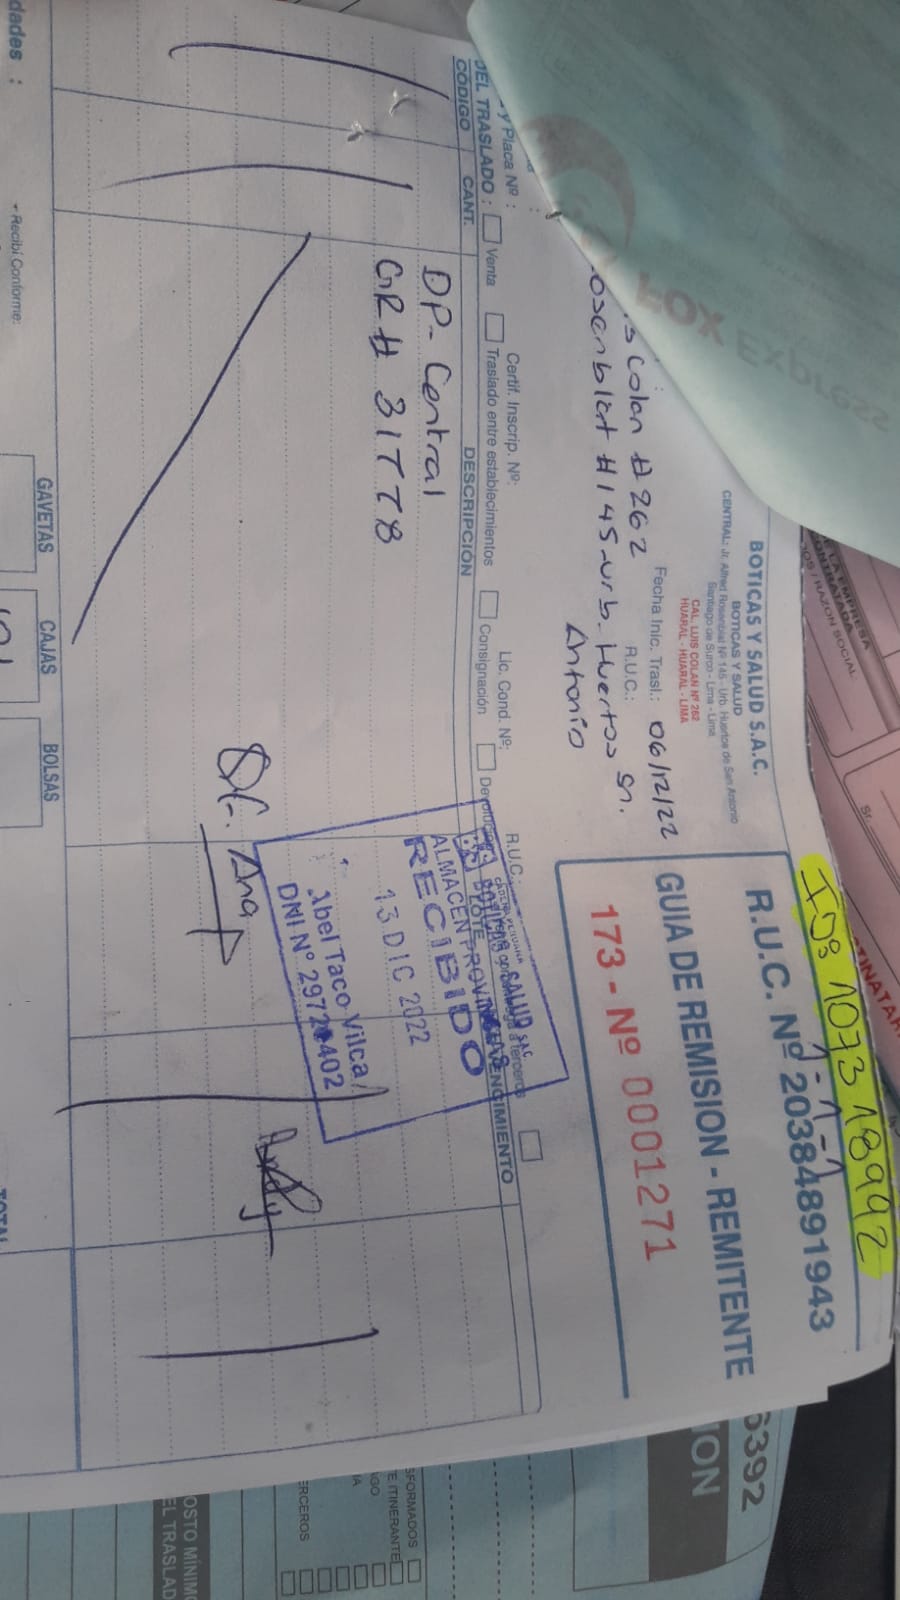 ID: 107318992
BOTICAS Y SALUD S.A.C.
BOTICAS Y SALUD
CENTRAL: Jr. Alfred Rosenblat Nº 145 - Urb. Huertos de San Antonio
Santiago de Surco - Lima - Lima
CAL. LUIS COLAN Nº 262
HUARAL - HUARAL - LIMA
R.U.C. Nº 20384891943
GUIA DE REMISION - REMITENTE
173 - Nº 0001271
Fecha Inic. Trasl.: 06/12/22
Colan # 262
R.U.C.:
Rosenblat # 145-urb. Huertos Sn.
Antonio
y Placa Nº :
Certif. Inscrip. Nº:
Lic. Cond. Nº:
R.U.C.:
DEL TRASLADO :
Venta
Traslado entre establecimientos
Consignación
CÓDIGO
CANT.
DESCRIPCIÓN
VENCIMIENTO
DP- Central
GR # 31778
SALUD SAC
ALMACEN
RECIBIDO
13 DIC 2022
Abel Taco Vilca
DNI Nº
Qf. Ana
dades :
Recibí Conforme:
GAVETAS
CAJAS
BOLSAS
FOX Express
LA EMPRESA
CONTRATADA
RAZON SOCIAL
Sr.
6392
ION
SFORMADOS
E ITINERANTE
ERCEROS
OSTO MÍNIMO
EL TRASLAD